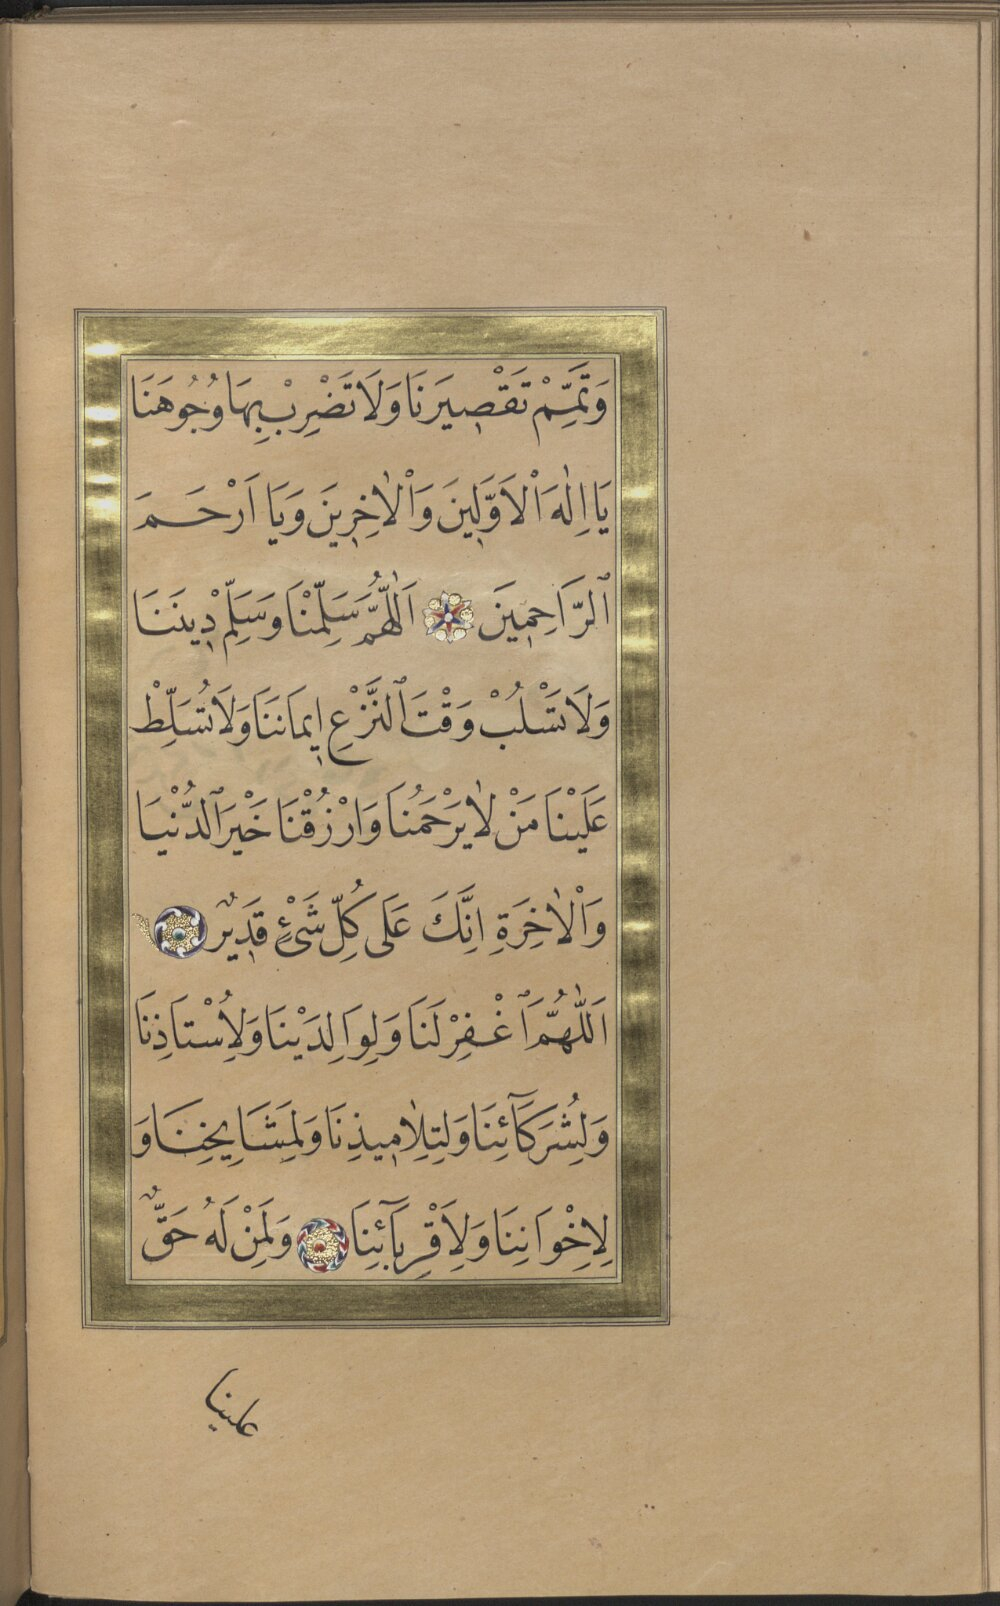 وَتَمِّمْ تَقْصِيرَنَا وَلَا تَضْرِبْ بِهَا وُجُوهَنَا
يَا اِلٰهَ اْلاَوَّلِينَ وَاْلاٰخِرِينَ وَيَا اَرْحَمَ
ٱلرَّاحِمِينَ اَللّٰهُمَّ سَلِّمْنَا وَسَلِّمْ دِينَنَا
وَلَا تَسْلُبْ وَقْتَ ٱلنَّزْعِ اِيمَانَنَا وَلَا تُسَلِّطْ
عَلَيْنَا مَنْ لاٰ يَرْحَمُنَا وَارْزُقْنَا خَيْرَ ٱلدُّنْيَا
وَاْلاٰخِرَةِ اِنَّكَ عَلَى كُلِّ شَىْءٍ قَدِيرٌ
اَللّٰهُمَّ ٱغْفِرْ لَنَا وَلِوَالِدَيْنَا وَلِاُسْتَاذِنَا
وَلِشُرَكَآئِنَا وَلِتِلاٰمِيذِنَا وَلِمَشَايِخِنَا وَ
لِاِخْوَانِنَا وَلِاَقْرِبَآئِنَا وَلِمَنْ لَهُ حَقٌّ
علينا